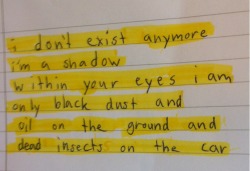 i don't exist anymore
i'm a shadow
within your eyes i am
only black dust and
oil on the ground and
dead insects on the car